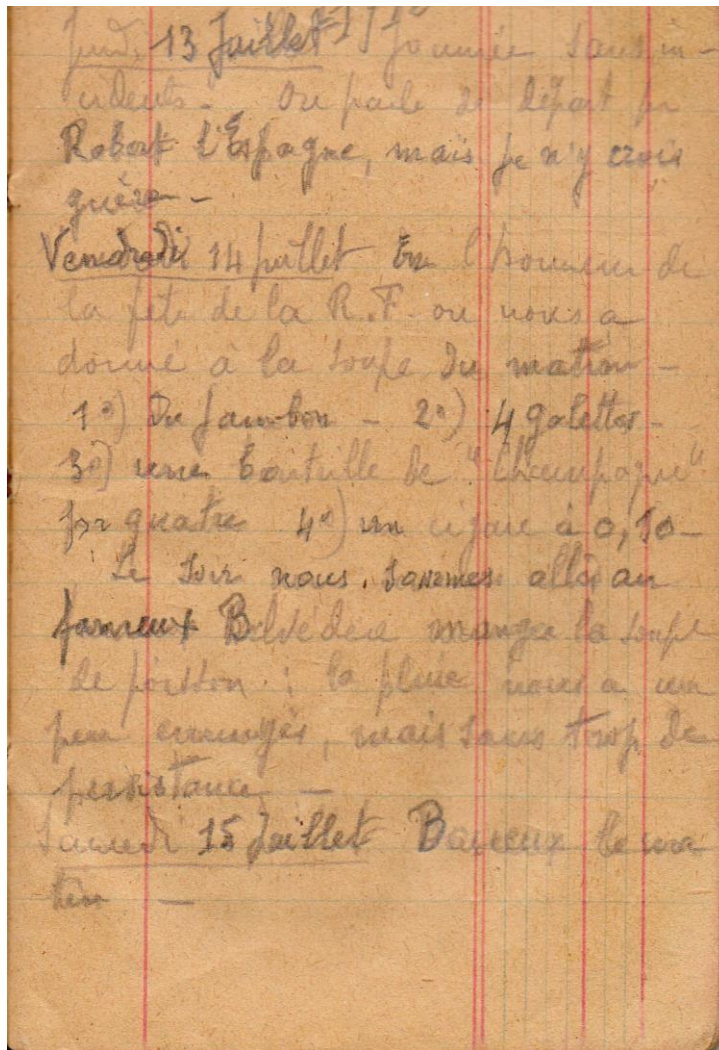 Jeudi 13 Juillet 1916 Journée sans in-
cidents. On parle de départ pr
Robert l'Espagne, mais je n'y crois
guère -
Vendredi 14 juillet En l'honneur de
la fête de la R.F. on nous a
donné à la soupe du matin -
1°) Du jambon - 2°) 4 galettes -
3°) une bouteille de "Champagne"
pr quatre 4°) un cigare à 0,10 -
Le soir nous sommes allés au
fameux Belvédère manger la soupe
de poisson ; la pluie nous a un
peu ennuyés, mais sans trop de
persistance -
Samedi 15 Juillet Bayeux le ma
tin -